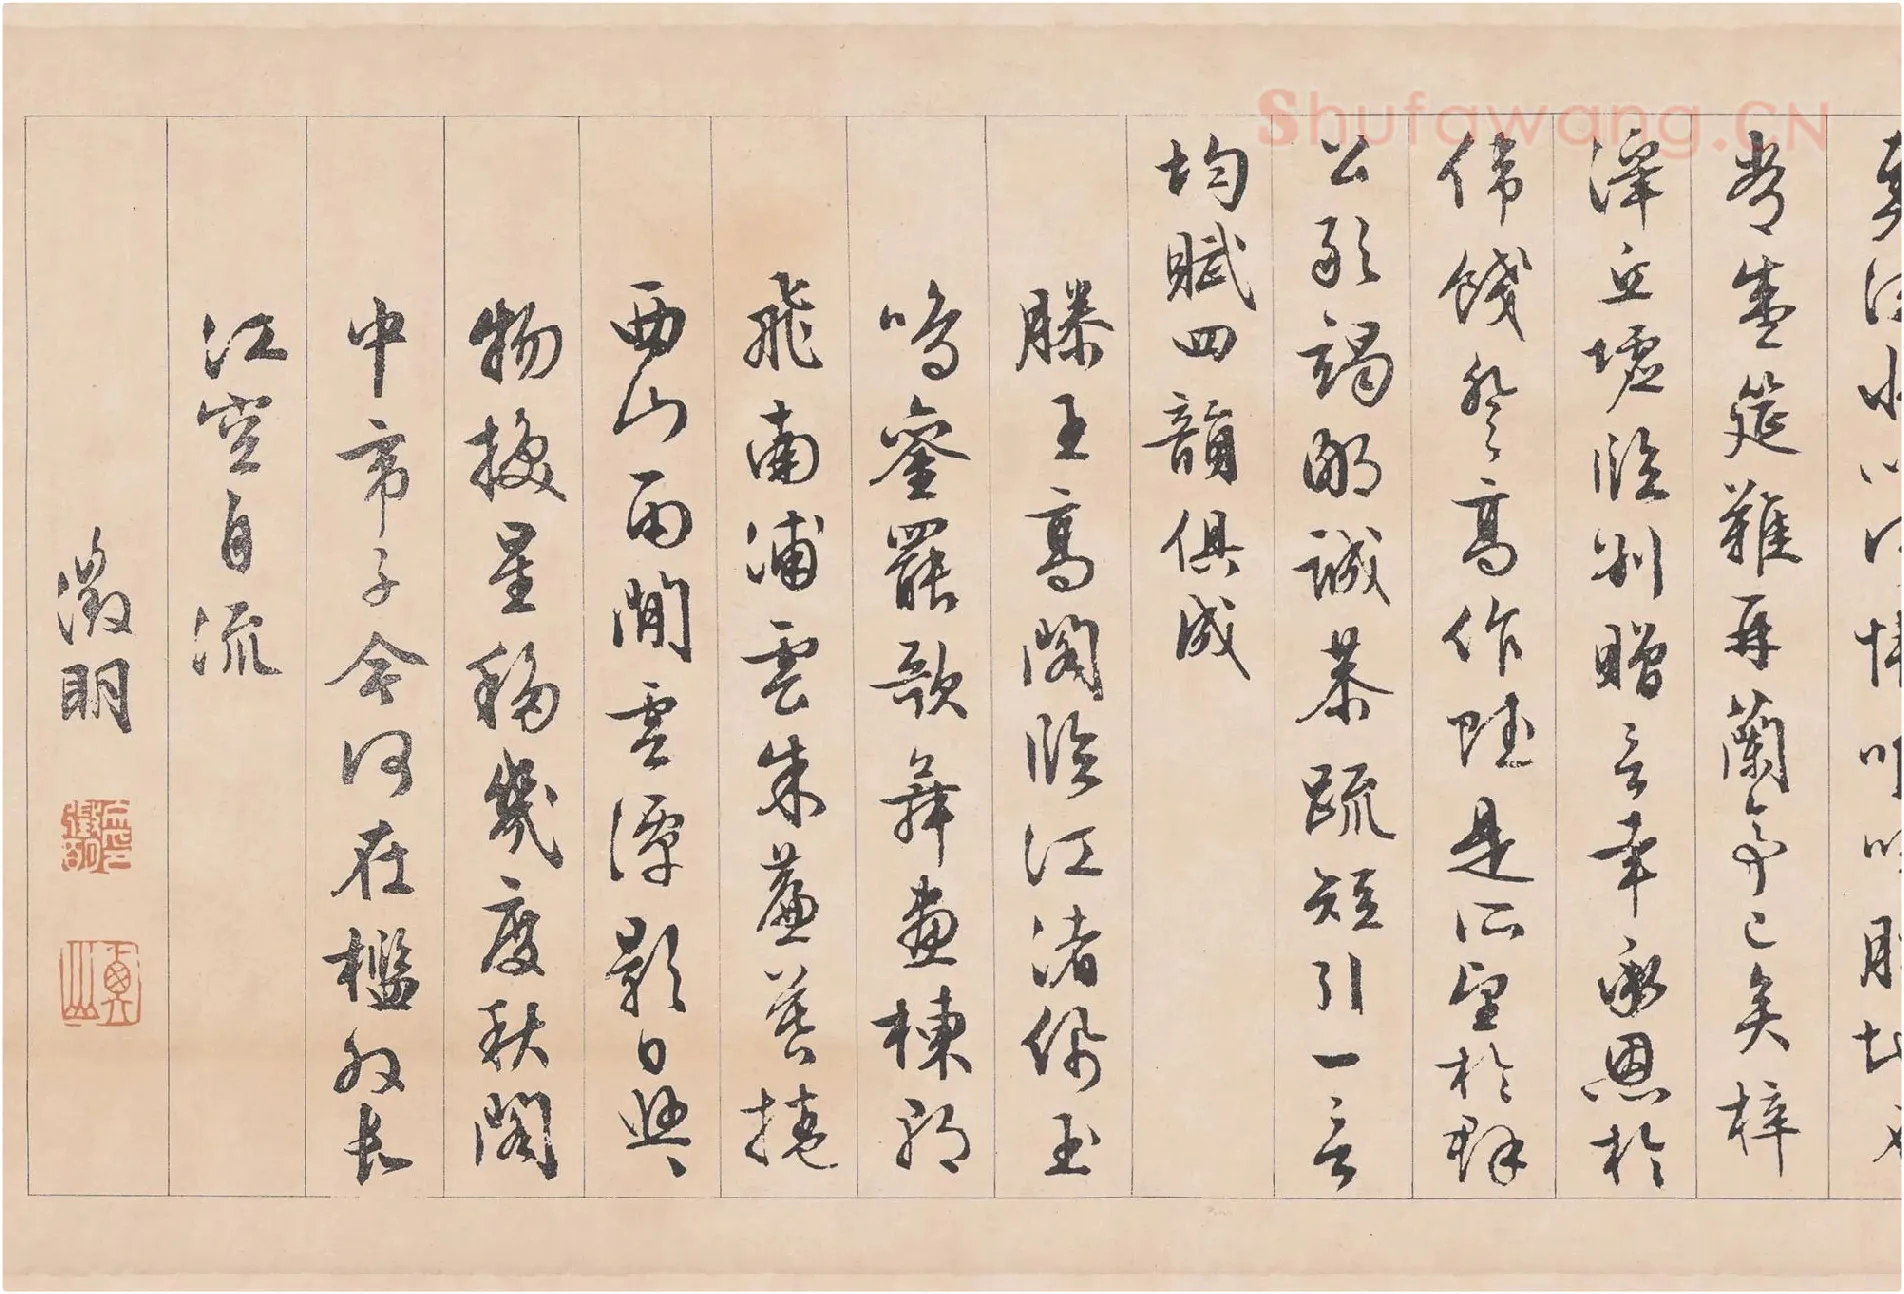 Shufawang.CN
常盛筵難再蘭亭已矣梓
澤丘墟臨別贈言幸承恩於
偉餞登高作賦是所望於群
公敢竭鄙誠恭疏短引一言
均賦四韻俱成
滕王高閣臨江渚佩玉
鳴鑾罷歌舞畫棟朝
飛南浦雲朱簾暮捲
西山雨閒雲潭影日悠々
物換星移幾度秋閣
中帝子今何在檻外長
江空自流
徵明
衡山